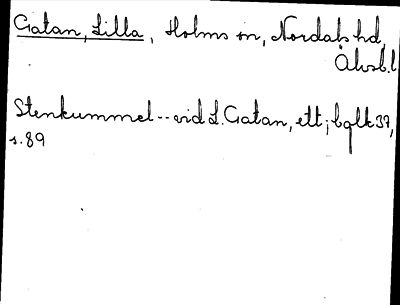 Gatan, Lilla, Holms sn, Nordals hd,
Älvsb.l
Stenkummel -- vid L. Gatan, ett; bglk 37,
s. 89